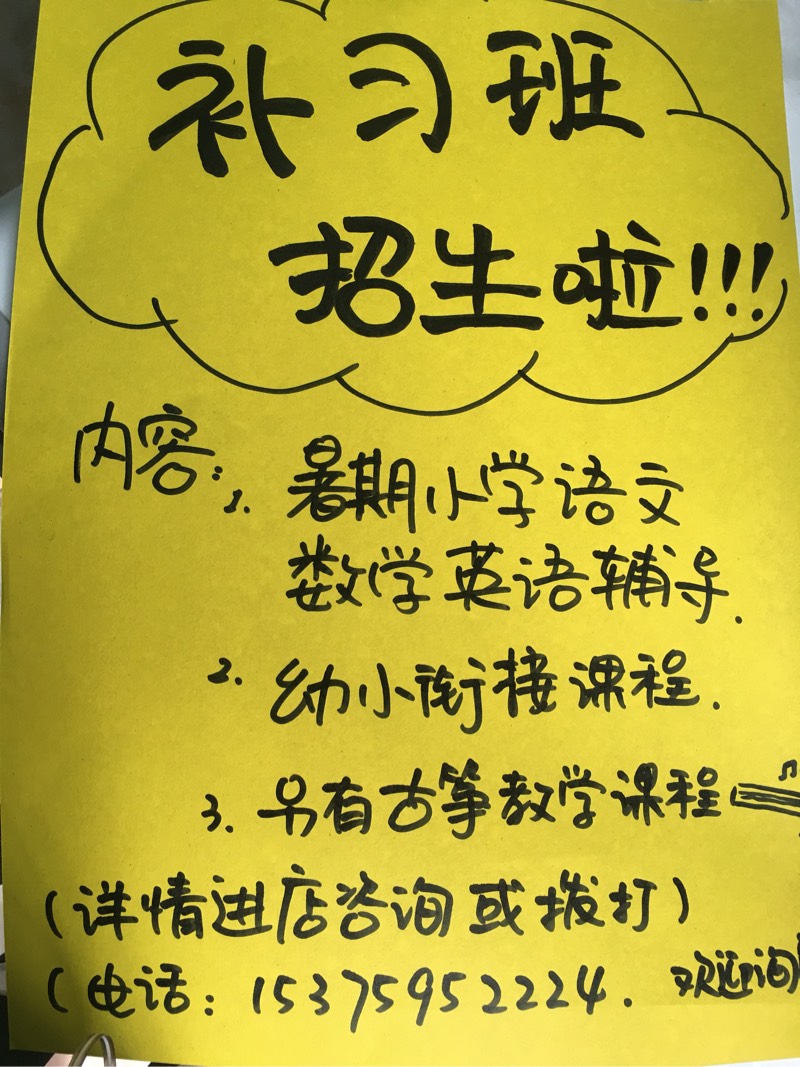 补习班
招生啦!!!
内容:1.暑期小学语文
数学英语辅导.
2.幼小衔接课程.
3.另有古筝教学课程
(详情进店咨询或拨打)
(电话:15375952224. 欢迎询